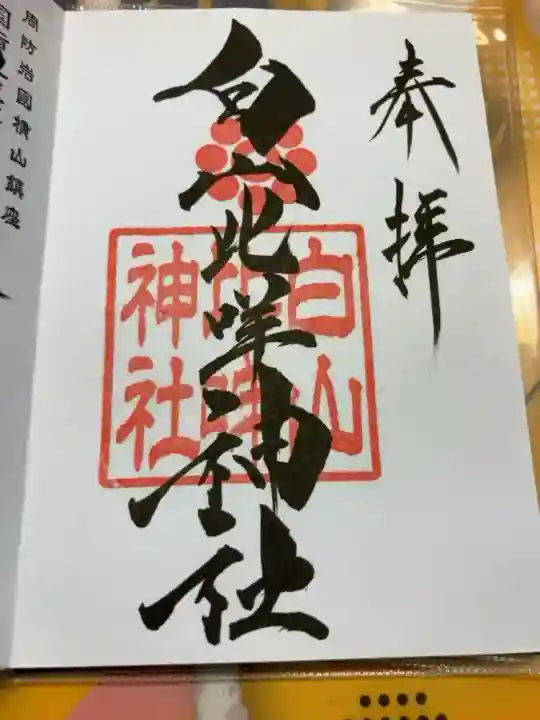 奉拝
白山比咩神社
白山
比咩
神社
周防治國横山鎮座